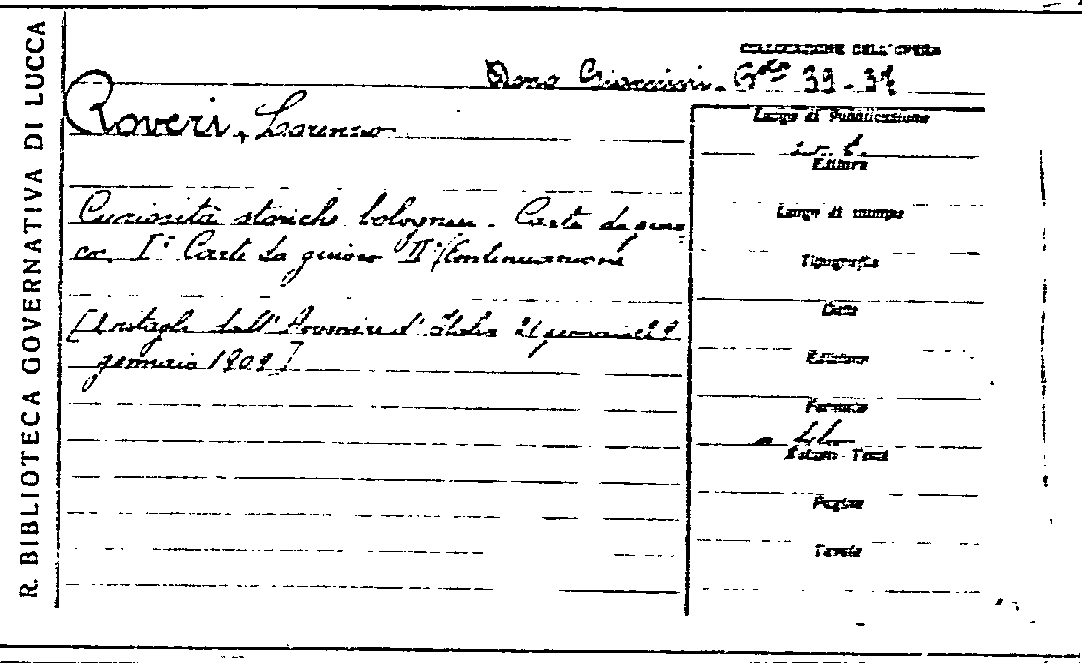 R. BIBLIOTECA GOVERNATIVA DI LUCCA
COLLOCAZIONE DELL'OPERA
Dono 39-37
Roveri, Lorenzo
Curiosità storiche bolognesi. Carte da giuo
co. I° Carte da giuoco II° (Continuazione
[Ritagli dell'Avvenire d'Italia 21 gennaio
gennaio 1909]
Luogo di Pubblicazione
Editore
Luogo di stampa
Tipografia
Data
Edizione
Formato
Volumi - Tomi
Pagine
Tavole